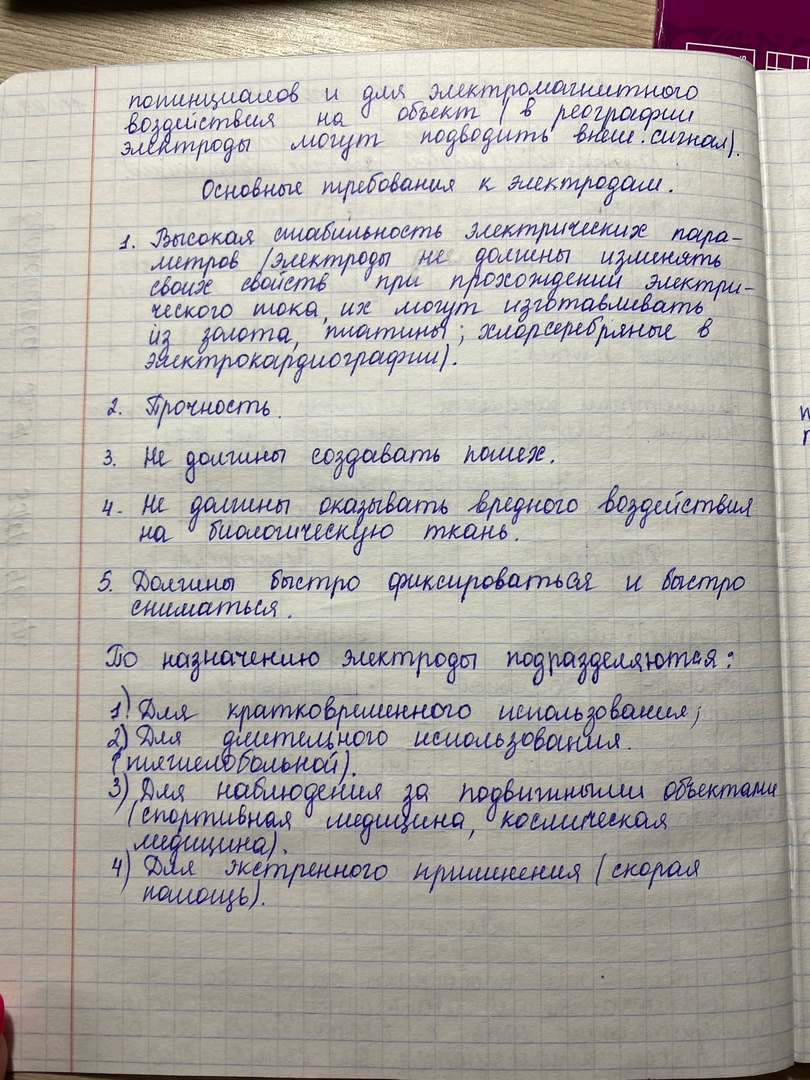 потинциалов и для электромагнитного
воздействия на объект (в реографии
электроды могут подводить внеш. сигнал).
Основные требования к электродам.
1. Высокая стабильность электрических пара-
метров (электроды не должны изменять
своих свойств при прохождении электри-
ческого тока, их могут изготавливать
из золота, платины; хлорсеребряные в
электрокардиографии).
2. Прочность.
3. Не должны создавать помех.
4. Не должны оказывать вредного воздействия
на биологическую ткань.
5. Должны быстро фиксироваться и быстро
сниматься.
По назначению электроды подразделяются:
1) Для кратковременного использования;
2) Для длительного использования.
(тяжелобольной).
3) Для наблюдения за подвижными объектами
(спортивная медицина, космическая
медицина).
4) Для экстренного применения (скорая
помощь).